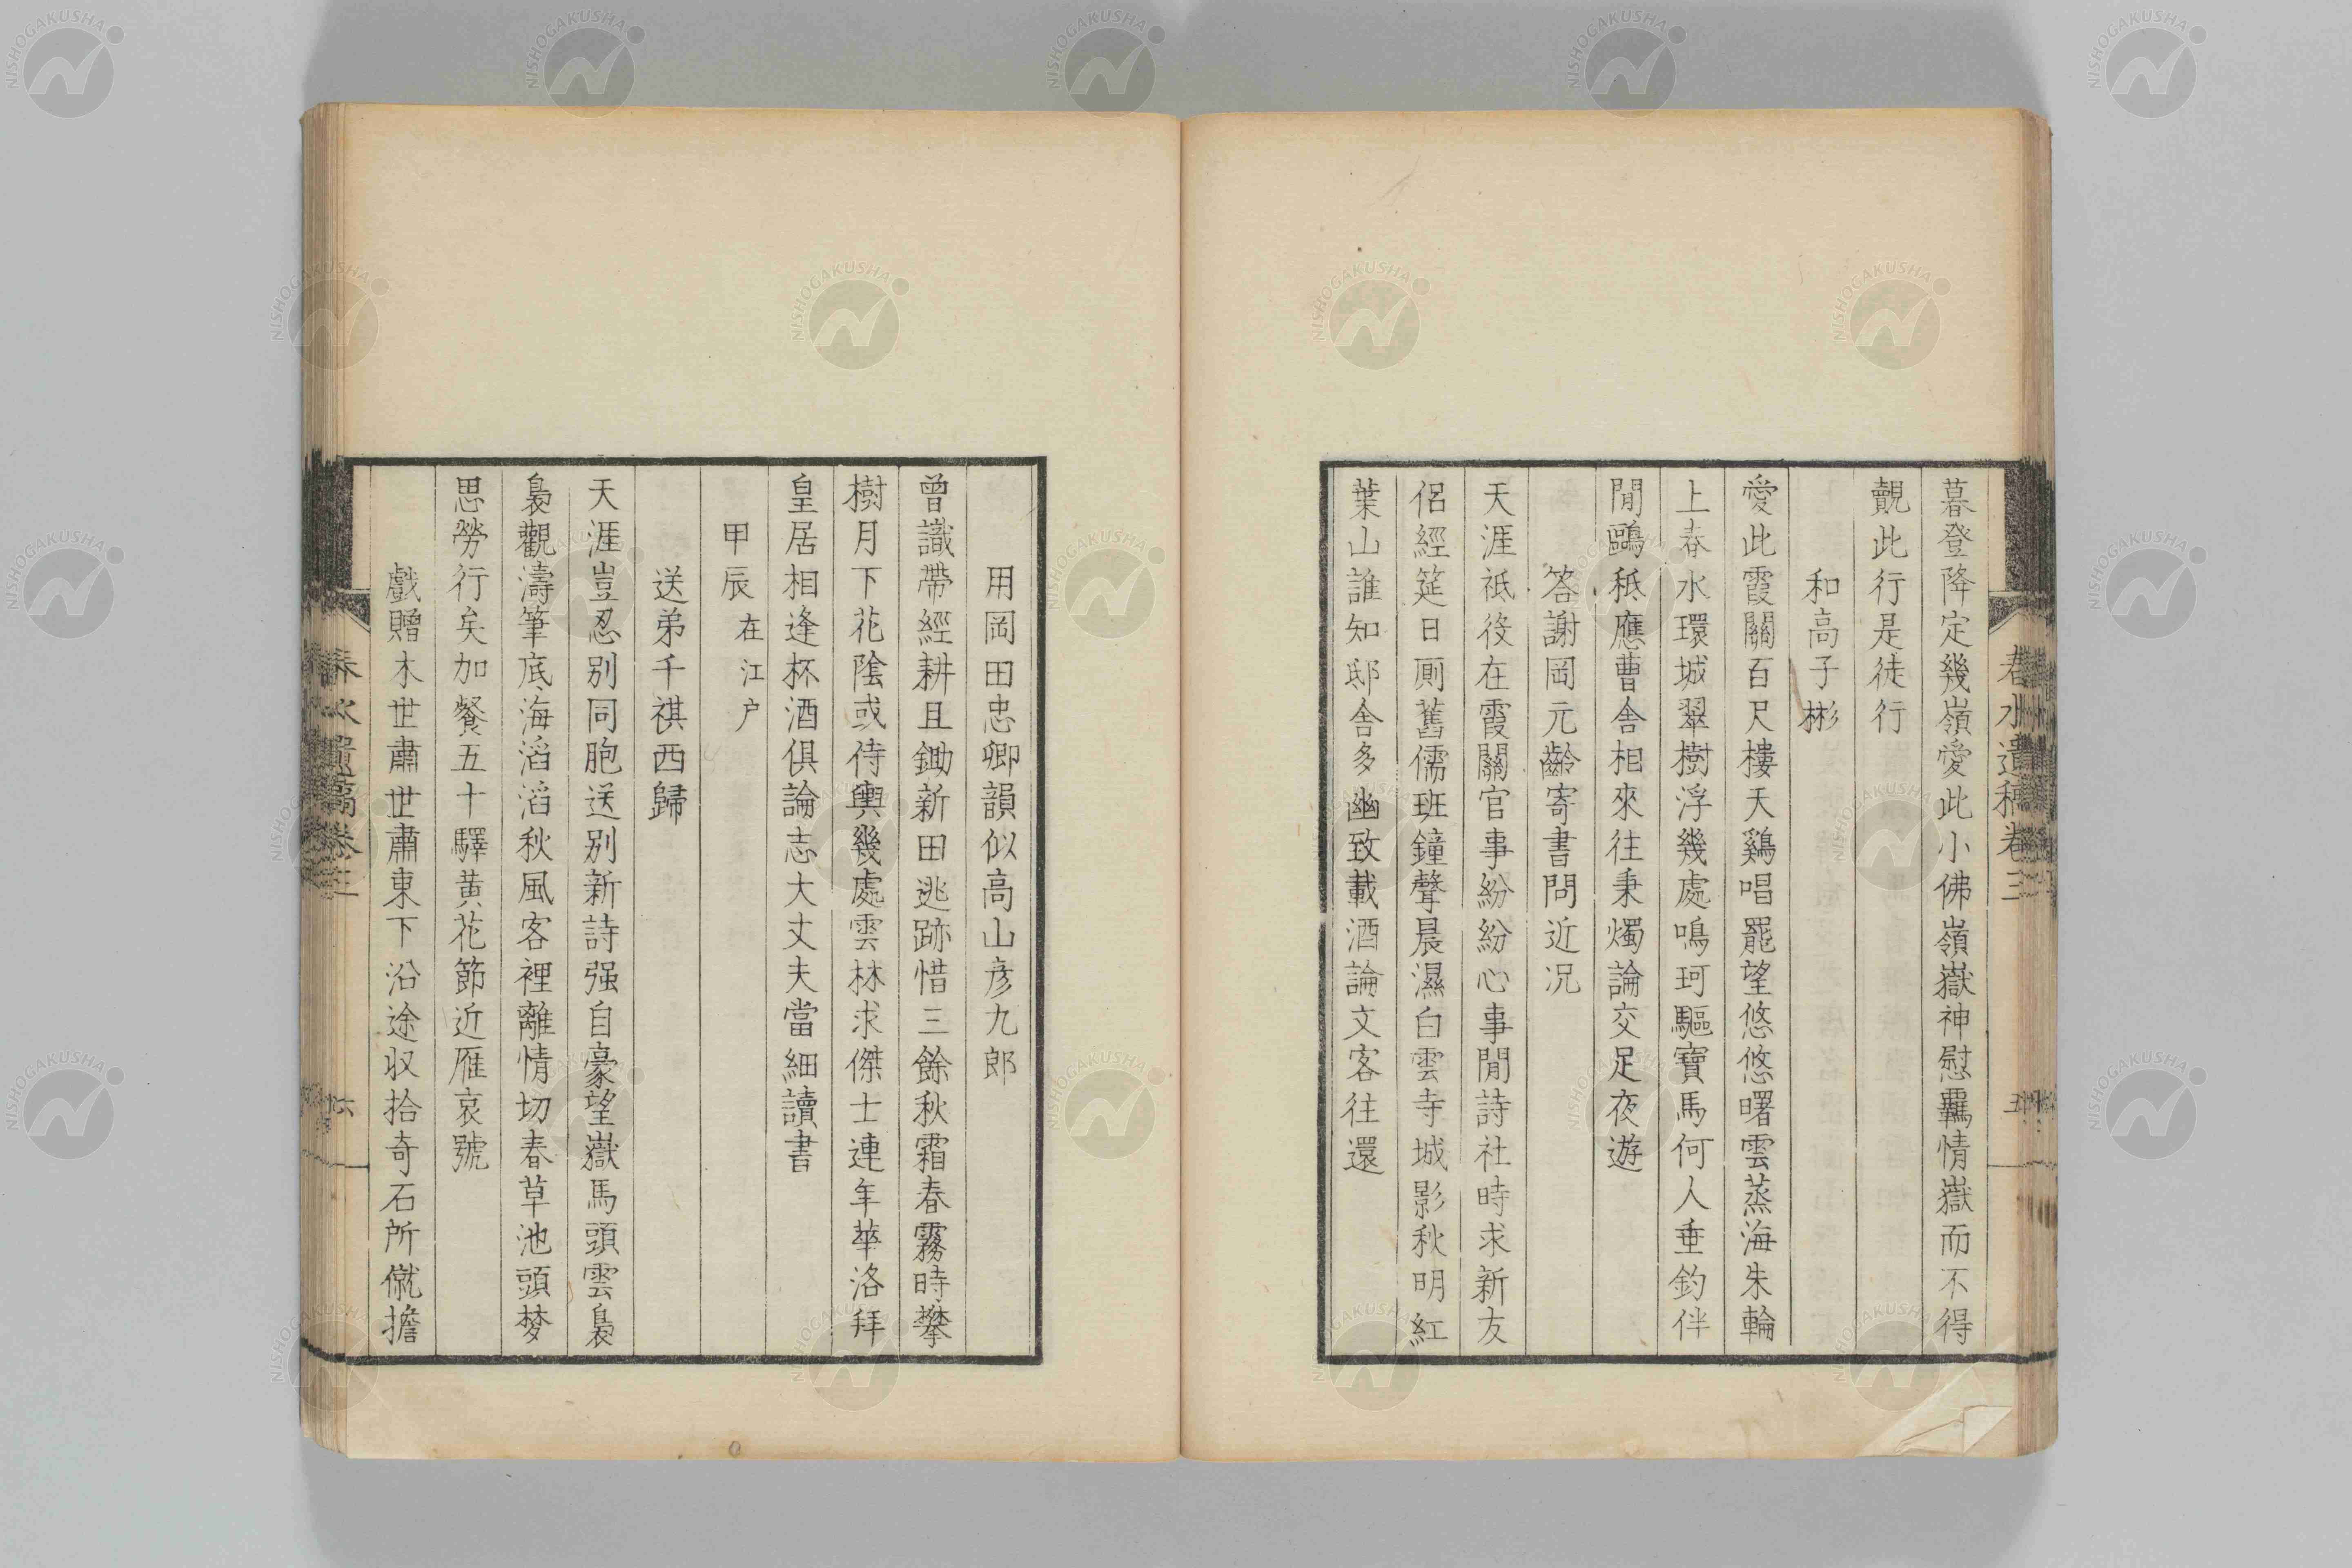 暮登降定幾嶺愛此小佛嶺嶽神慰羈情嶽而不得
覿此行是徒行
和高子彬
愛此霞關百尺樓天鷄唱罷望悠悠曙雲蒸海朱輪
上春水環城翠樹浮幾處鳴珂驅寶馬何人垂釣伴
閒鷗秖應曹舍相來往秉燭論交足夜遊
答謝岡元齡寄書問近況
天涯祗役在霞關官事紛紛心事閒詩社時求新友
侶經筵日厠舊儒班鐘聲晨濕白雲寺城影秋明紅
葉山誰知邸舍多幽致載酒論文客往還
春水遺稿卷三
五
用岡田忠卿韻似高山彦九郎
曾識帶經耕且鋤新田逃跡惜三餘秋霜春霧時攀
樹月下花陰或侍輿幾處雲林求傑士連年華洛拜
皇居相逢杯酒俱論志大丈夫當細讀書
甲辰在江户
送弟千祺西歸
天涯豈忍別同胞送別新詩强自豪望嶽馬頭雲裊
裊觀濤筆底海滔滔秋風客裡離情切春草池頭梦
思勞行矣加餐五十驛黄花節近雁哀號
戲贈木世肅世肅東下沿途収拾奇石所僦擔
春水遺稿卷三
六
NISHOGAKUSHA